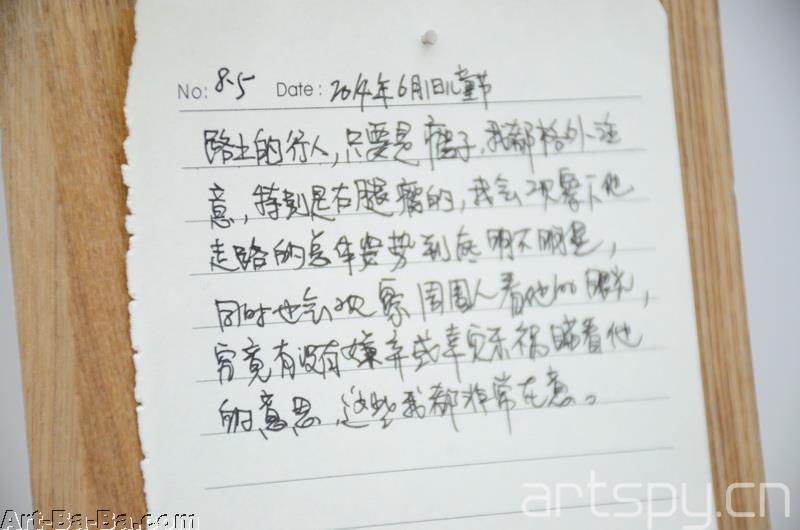 No: 8.5 Date: 2014年6月1日儿童节
路上的行人,只要是瘸子,我都格外注
意,特别是右腿瘸的,我会观察下他
走路的身体姿势到底明不明显,
同时也会观察周围人看他的眼光,
究竟有没有嫌弃或幸灾乐祸瞄着他
的意思,这些我都非常在意。
artspy.cn
Art-Ba-Ba.com